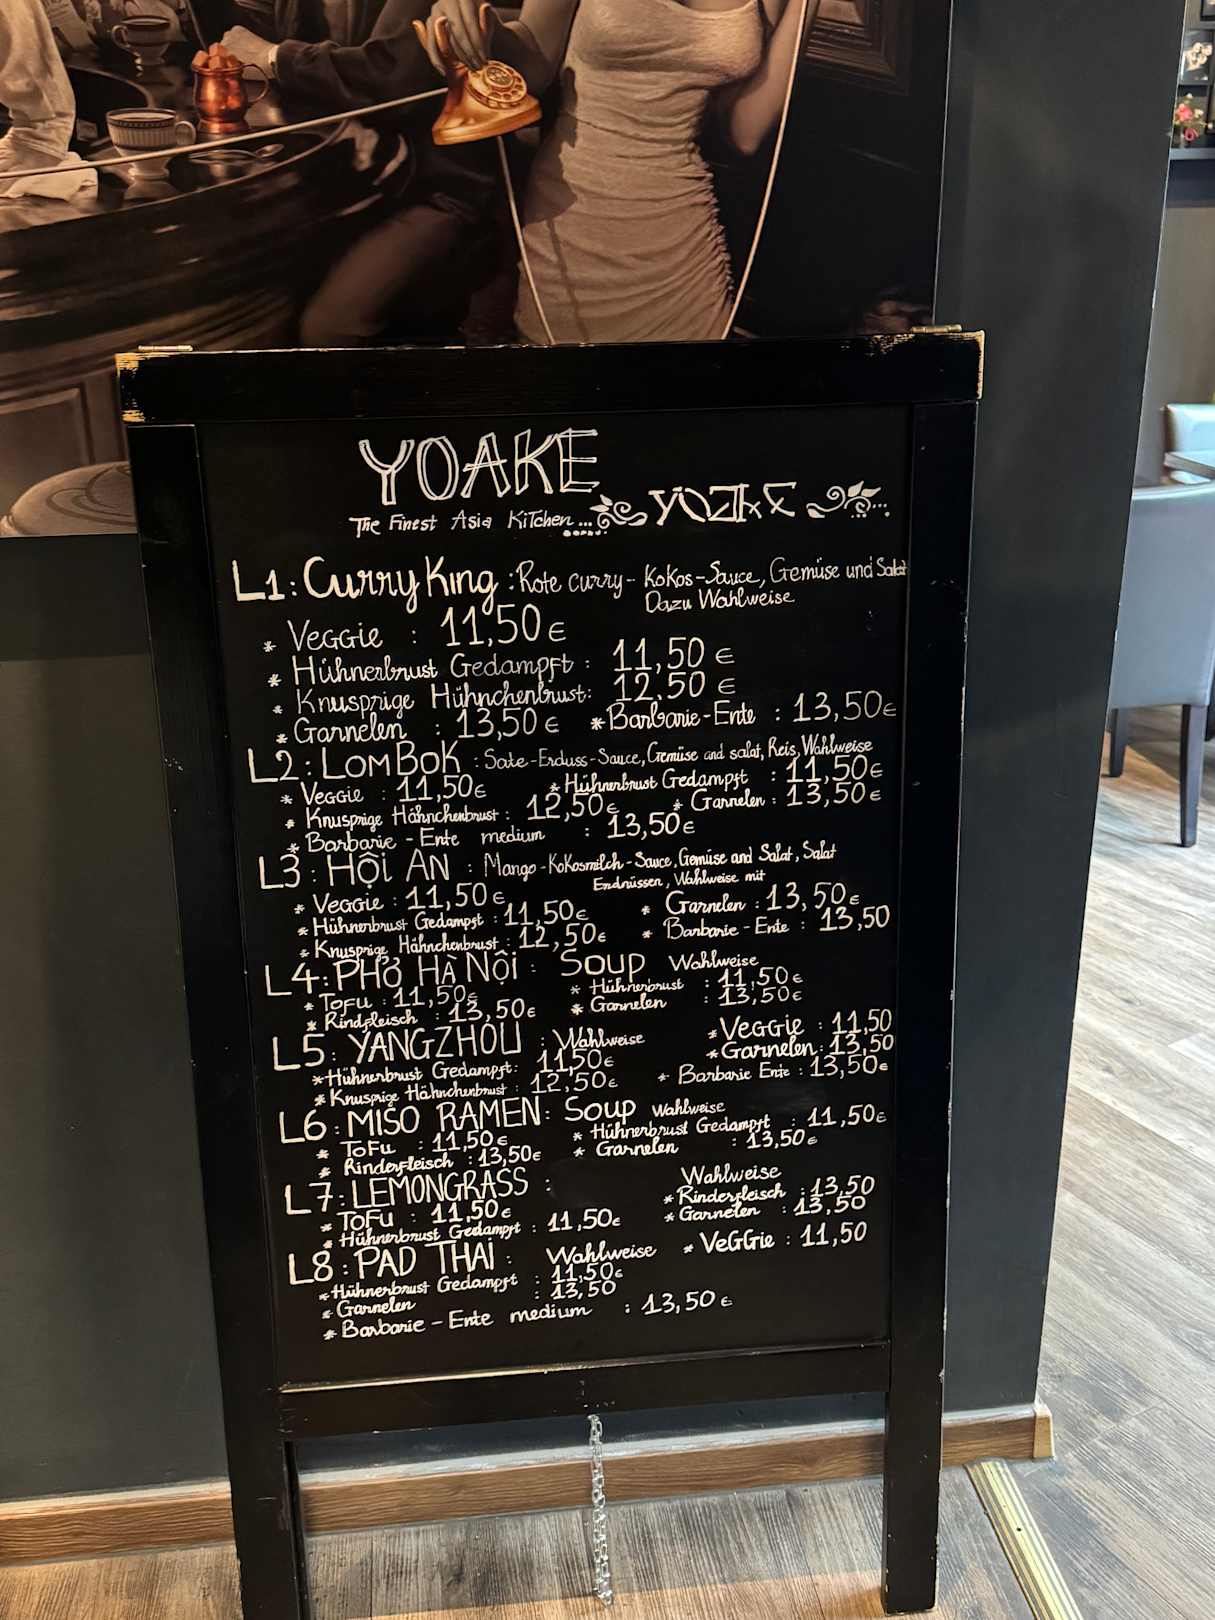 YOAKE
The Finest Asia Kitchen...
YOAKE
L1: Curry King : Rote curry - Kokos-Sauce, Gemüse und Salat
Dazu Wahlweise
* Veggie : 11,50€
* Hühnerbrust Gedampft : 11,50€
* Knusprige Hühnchenbrust: 12.50€
* Garnelen : 13,50€ * Barbarie-Ente : 13,50€
L2: LomBok : Sate-Erduss-Sauce, Gemüse and salat, Reis, Wahlweise
* Veggie : 11,50€ * Hühnerbrust Gedampft : 11,50€
* Knusprige Hähnchenbrust : 12,50€ * Garnelen : 13,50€
* Barbarie - Ente medium : 13,50€
L3: HỘI AN : Mango-Kokosmilch-Sauce, Gemüse and Salat, Salat
Endnüssen, Wahlweise mit
* Veggie : 11,50€ * Garnelen : 13,50€
* Hühnerbrust Gedampft : 11,50€ * Barbarie - Ente : 13,50
* Knusprige Hähnchenbrust : 12,50€
L4: PHỞ HÀ NỘI : Soup Wahlweise
* Tofu : 11,50€ * Hühnerbrust : 11,50€
* Rindfleisch : 13,50€ * Garnelen : 13,50€
L5: YANGZHOU : Wahlweise * Veggie : 11,50
* Hühnerbrust Gedampft: 11,50€ * Garnelen : 13,50
* Knusprige Hähnchenbrust : 12,50€ * Barbarie Ente : 13,50€
L6: MISO RAMEN: Soup Wahlweise
* Tofu : 11,50€ * Hühnerbrust Gedampft : 11,50€
* Rinderfleisch : 13,50€ * Garnelen : 13,50€
L7: LEMONGRASS : Wahlweise
* Tofu : 11,50€ * Rinderfleisch : 13,50
* Hühnerbrust Gedampft : 11,50€ * Garnelen : 13,50
L8: PAD THAI : Wahlweise * Veggie : 11,50
* Hühnerbrust Gedampft : 11,50€
* Garnelen : 13,50
* Barbarie - Ente medium : 13,50€